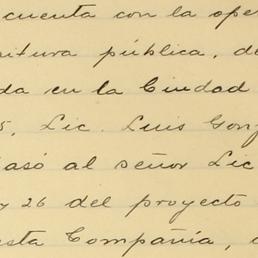 cuenta con la ope
ritura pública, de
da en la Ciudad
5, Lic. Luis Gonz
asó al señor Lic
y 26 del proyecto
esta Compañía,